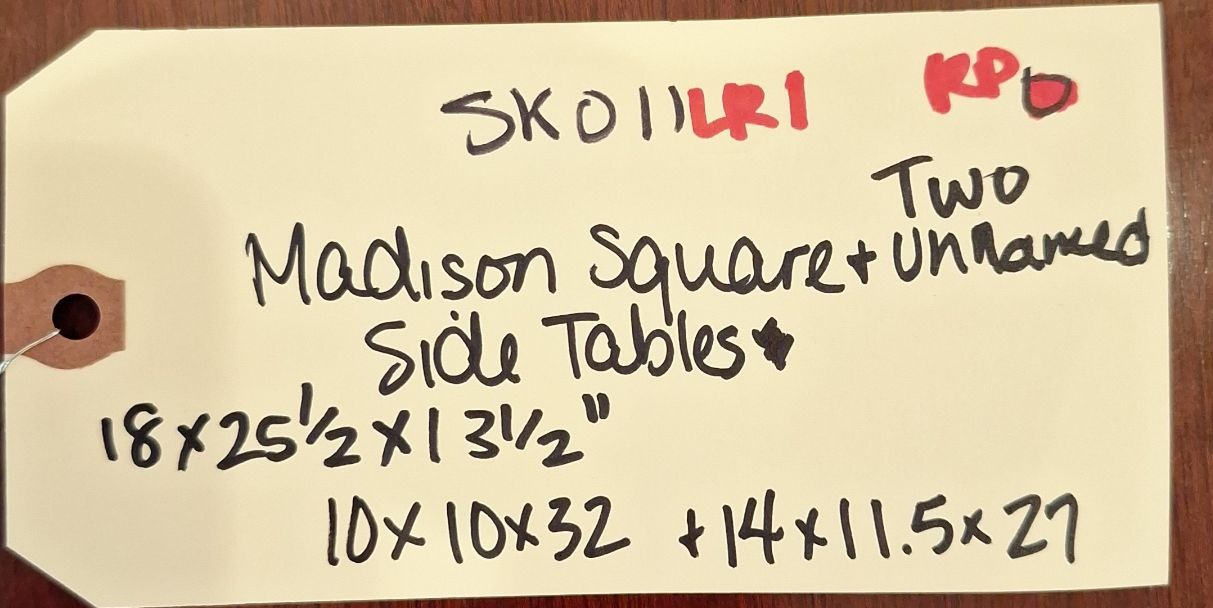 SK011LR1 RPD
Two
Madison Square + Unnamed
Side Tables
18x25 1/2 x 13 1/2"
10x10x32 + 14x11.5x27